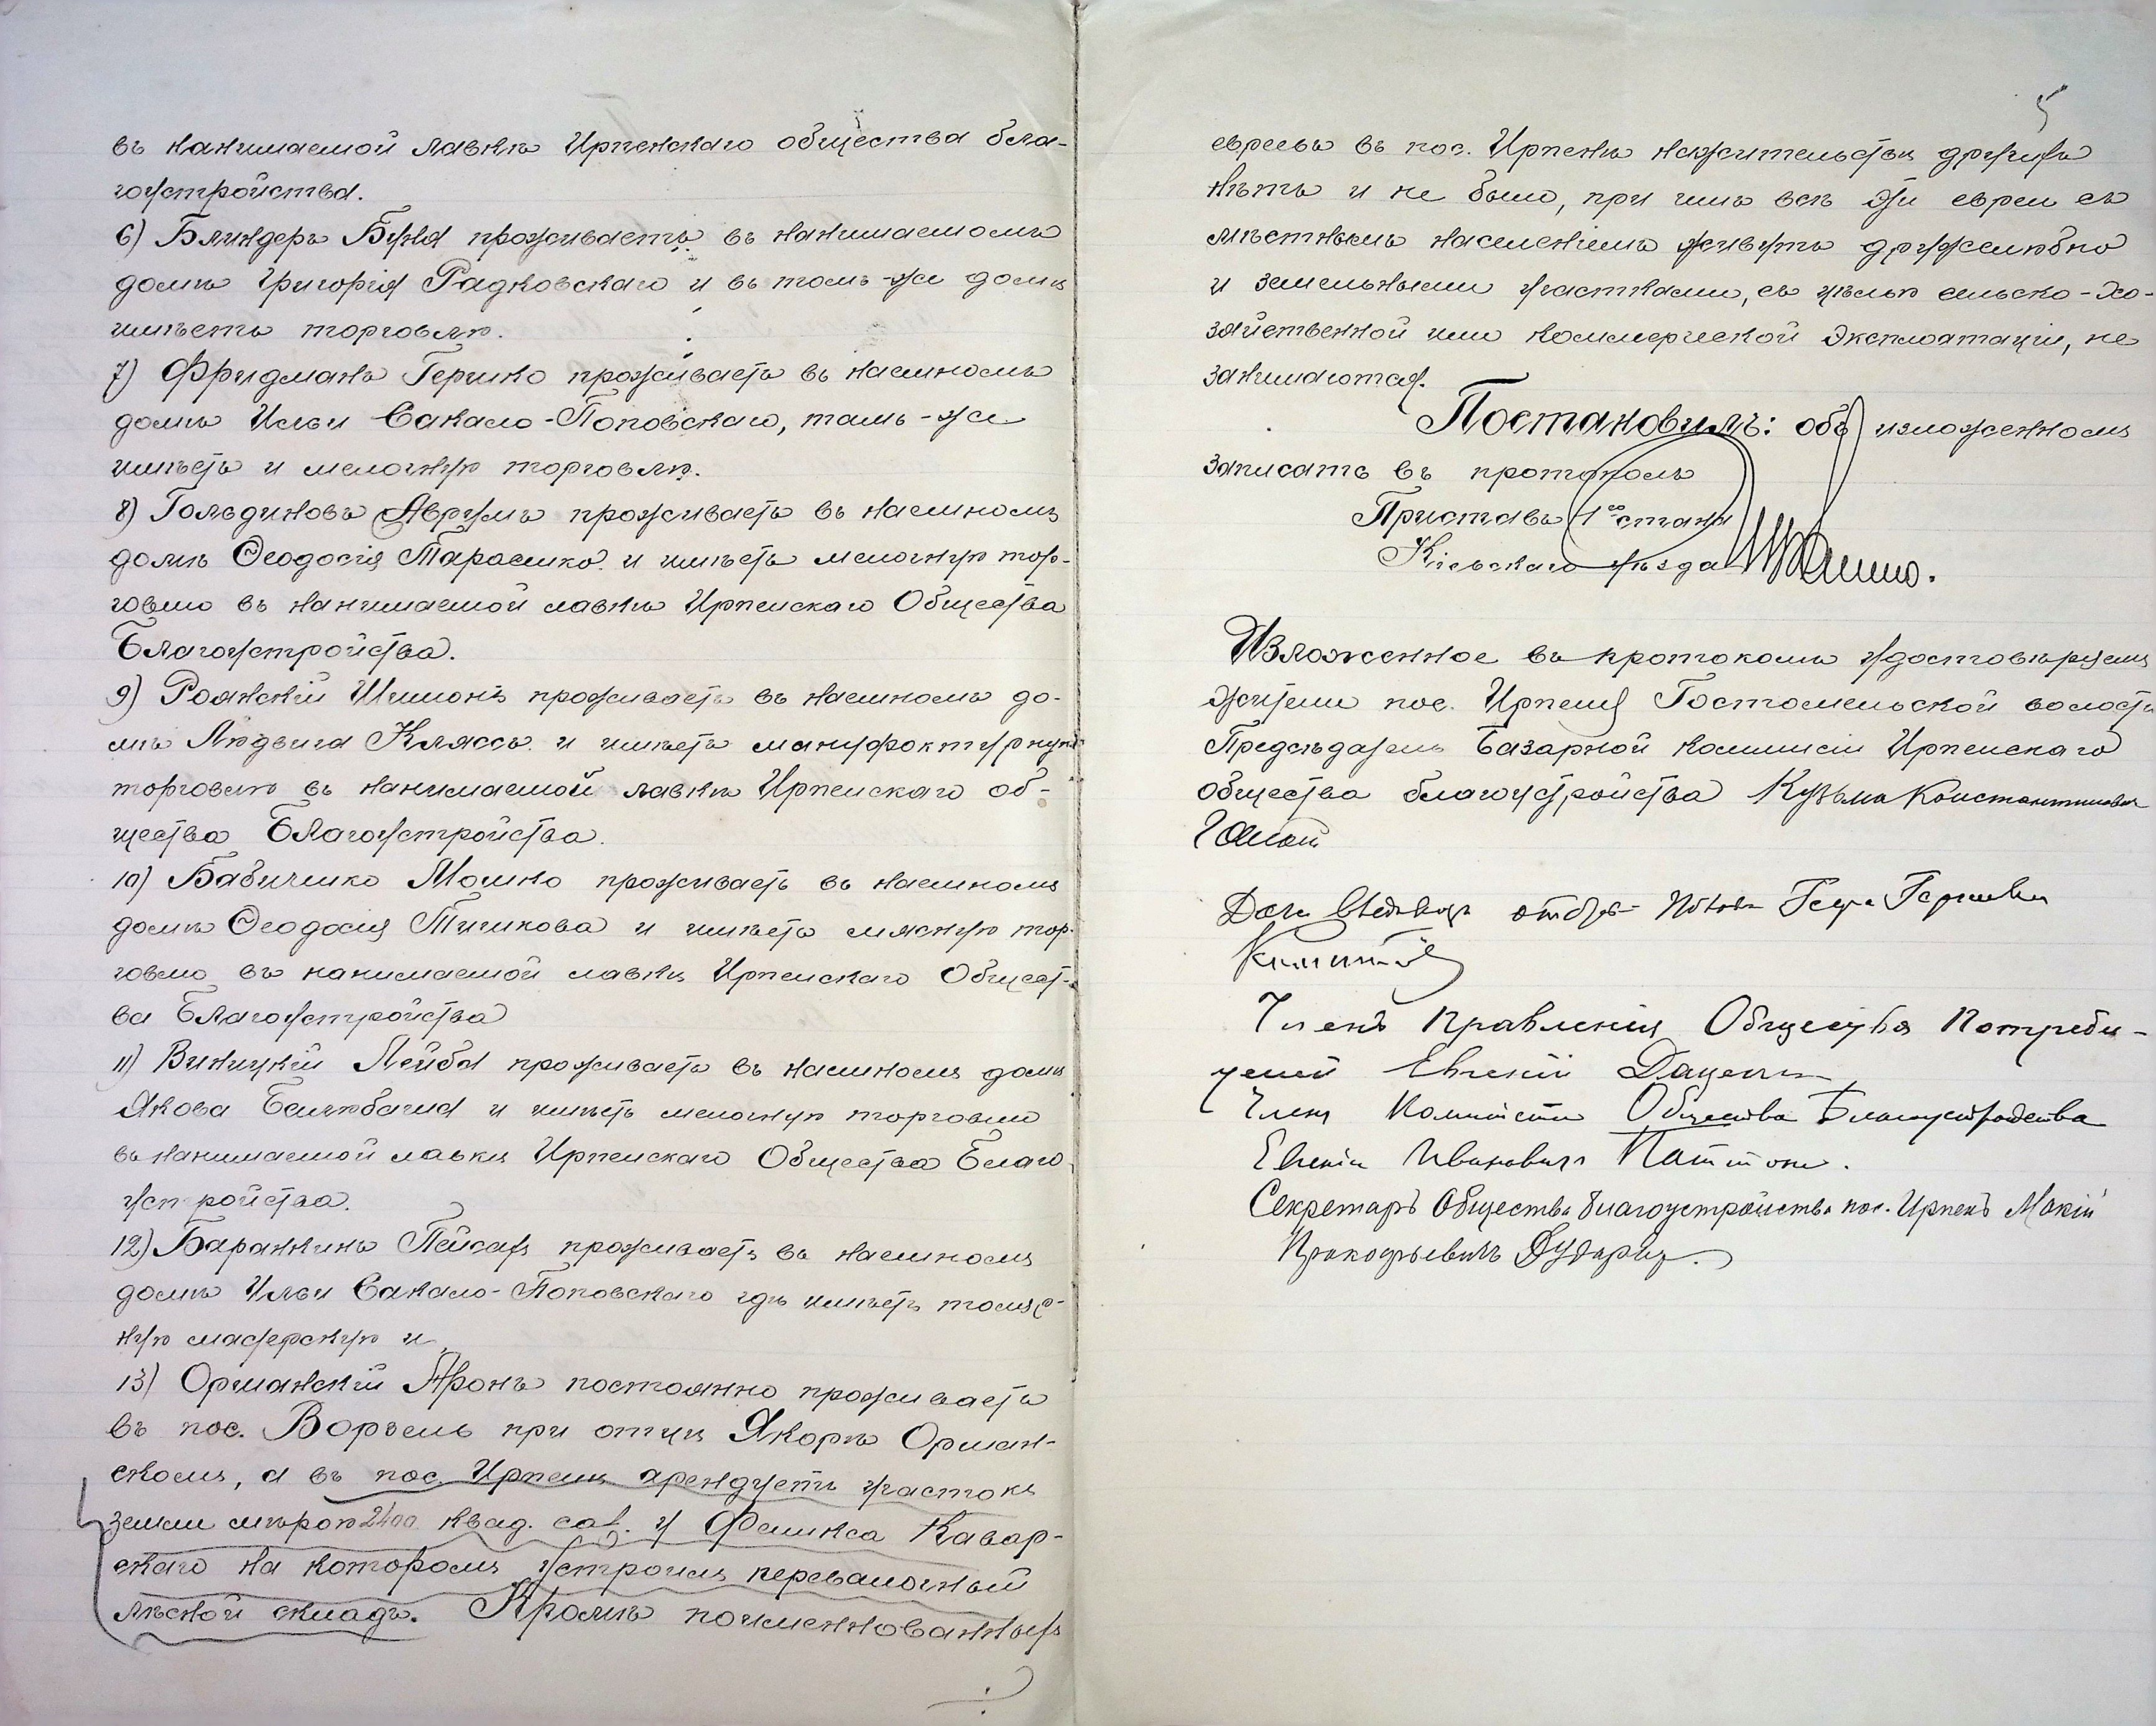 въ нанимаемой лавкѣ Ирпенскаго общества бла-
гоустройства.
6) Блиндеръ Буня проживаетъ въ нанимаемомъ
домѣ Григорія Радковскаго и въ томъ-же домѣ
имѣетъ торговлю.
7) Фридманъ Гершко проживаетъ въ наемномъ
домѣ Ильи Сакало-Поповскаго, тамъ-же
имѣетъ и мелочную торговлю.
8) Гольдиновъ Аврумъ проживаетъ въ наемномъ
домѣ Ѳеодосія Тарасенко и имѣетъ мелочную тор-
говлю въ нанимаемой лавкѣ Ирпенскаго Общества
Благоустройства.
9) Шимонъ проживаетъ въ наемномъ до-
мѣ Людвига Кляссъ и имѣетъ мануфактурную
торговлю въ нанимаемой лавкѣ Ирпенскаго об-
щества Благоустройства.
10) Бабичко Мошко проживаетъ въ наемномъ
домѣ Ѳеодосія и имѣетъ мясную тор-
говлю въ нанимаемой лавкѣ Ирпенскаго Общест-
ва Благоустройства
11) Виницкій Лейба проживаетъ въ наемномъ домѣ
Якова и имѣетъ мелочную торговлю
въ нанимаемой лавкѣ Ирпенскаго Общества Благо
устройства.
12) Баранкинъ Пейсахъ проживаетъ въ наемномъ
домѣ Ильи Сакало-Поповскаго гдѣ имѣетъ
и
13) Орманскій Аронъ постоянно проживаетъ
въ пос. Ворзель при отцѣ Орман-
скомъ, а въ пос. Ирпень арендуетъ участокъ
земли мѣрою 2400 квад. саж. у Феликса Кавар-
скаго на которомъ устроилъ перевалочный
лѣсной складъ. Кромѣ поименованныхъ
5
евреевъ въ пос. Ирпень на жительствѣ другихъ
нѣтъ и не было, при чемъ всѣ эти евреи съ
мѣстнымъ населеніемъ живутъ дружелюбно
и земельными участками, съ цѣлью сельско-хо-
зяйственной или коммерческой эксплоатаціи, не
занимаются.
Постановилъ: объ изложенномъ
записать въ протоколъ
Приставъ 1го стана
Кіевскаго уѣзда
Изложенное въ протоколѣ удостовѣряемъ
жители пос. Ирпеня Гостомельской волости
Предсѣдатель Базарной комиссіи Ирпенскаго
общества благоустройства Кузьма Константиновичъ
Членъ Правленія Общества Потреби-
телей Евгеній Даценко
Членъ Комиссіи Общества Благоустройства
Евгеній Ивановичъ Паттонъ.
Секретарь Общества благоустройства пос. Ирпень Мокій
Прокофьевичъ